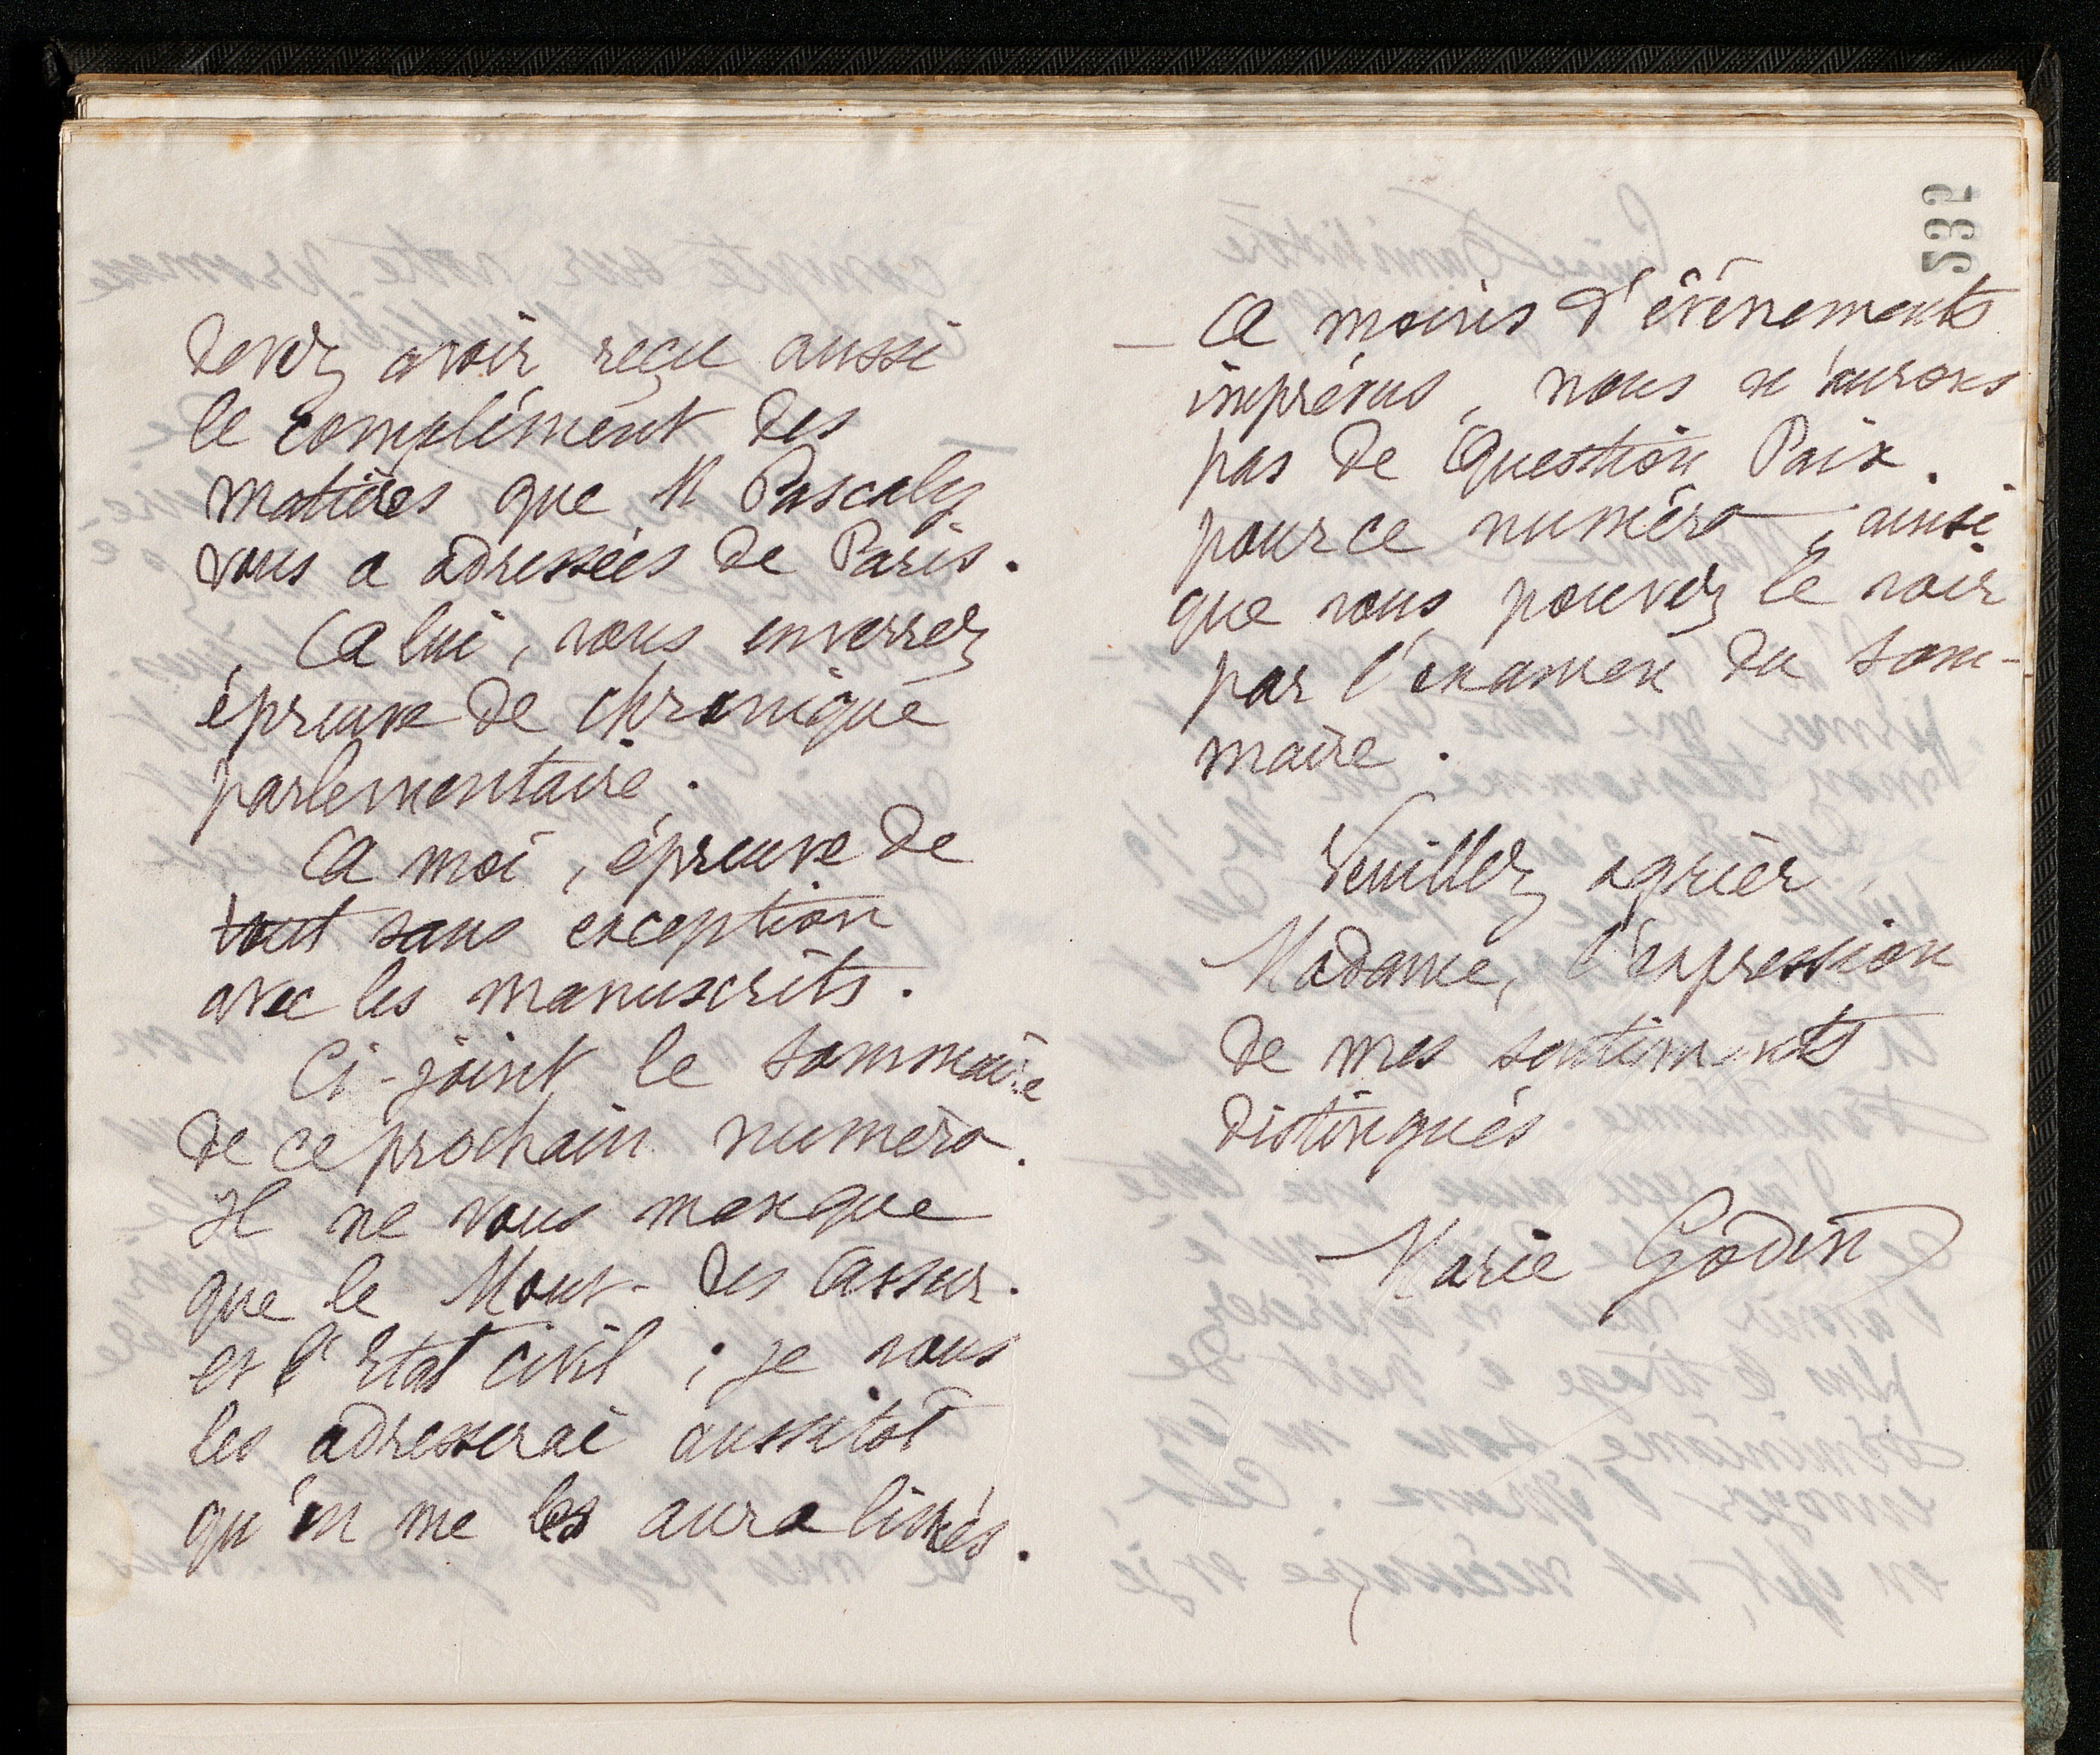 devez avoir reçu aussi
le complément des
matières que M Pascaly
vous a adressées de Paris.
A lui, vous enverrez
épreuve de chronique
parlementaire.
A moi, épreuve de
tout sans exception
avec les manuscrits.
Ci-joint le sommaire
de ce prochain numéro.
Il ne vous manque
que le Mouv- des Assur.
et l'Etat civil ; je vous
les adresserai aussitôt
qu'on me les aura livrés.
532
— A moins d'évènements
imprévus, nous n'aurons
pas de Question Paix
pour ce numéro ; ainsi
que vous pouvez le voir
par l'examen du som-
maire.
Veuillez agréer,
Madame, l'expression
de mes sentiments
distingués
Marie Godin